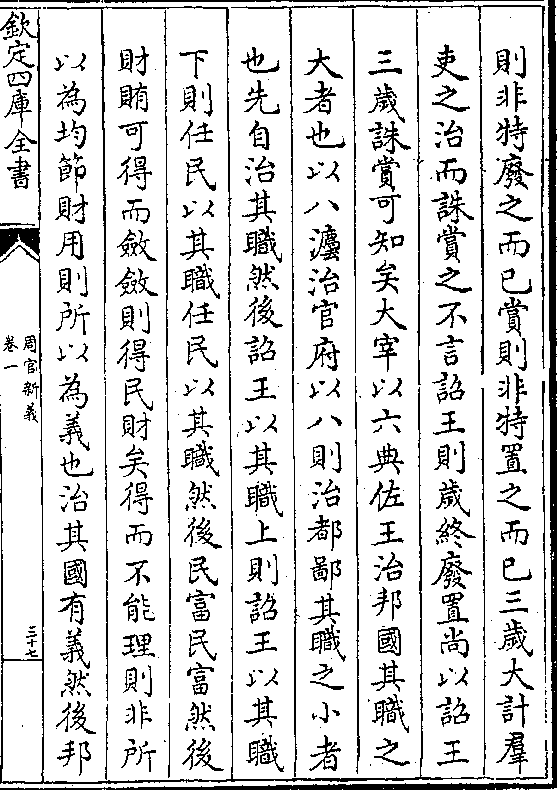 則非特廢之而已賞則非特置之而已三歲大計羣
吏之治而誅賞之不言詔王則歲終廢置尚以詔王
三歲誅賞可知矣大宰以六典佐王治邦國其職之
大者也以八灋治官府以八則治都鄙其職之小者
也先自治其職然後詔王以其職上則詔王以其職
下則任民以其職任民以其職然後民富民富然後
財賄可得而斂斂則得民財矣得而不能理則非所
以為均節財用則所以為義也治其國有義然後邦
欽定四庫全書
周官新義
卷一
三十七